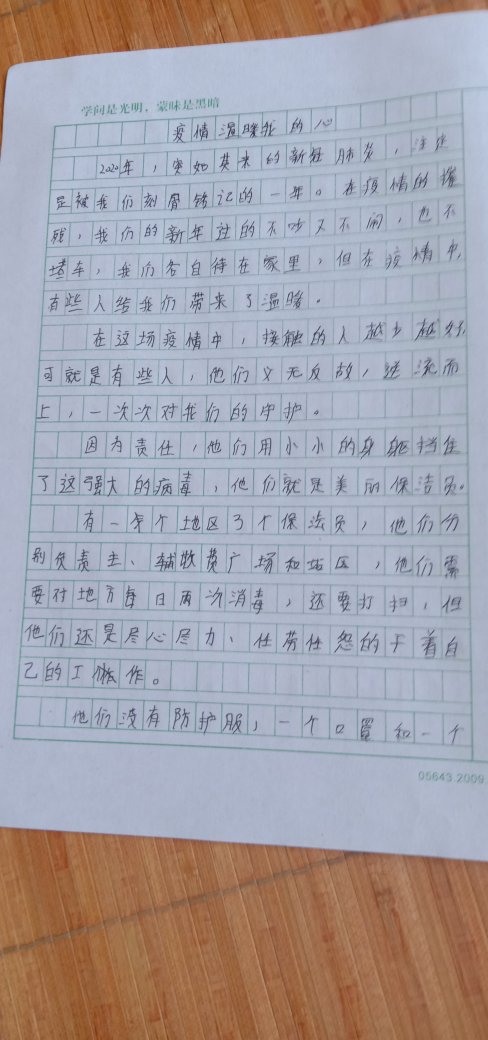 学问是光明，蒙昧是黑暗
疫情温暖我的心
2020年，突如其来的新冠肺炎，注定
是被我们刻骨铭记的一年。在疫情的
我们的新年过的不吵又不闹，也不
堵车，我们各自待在家里，但在疫情中，
有些人给我们带来了温暖。
在这场疫情中，接触的人越少越好，
可就是有些人，他们义无反故，逆流而
上，一次次对我们的守护。
因为责任，他们用小小的身躯挡住
了这强大的病毒，他们就是美丽保洁员。
有一个地区3个保洁员，他们分
别负责主、辅收费广场和站区，他们需
要对地方每日两次消毒，还要打扫，但
他们还是尽心尽力、任劳任怨的干着自
己的工作。
他们没有防护服，一个口罩和一个
05643.2009